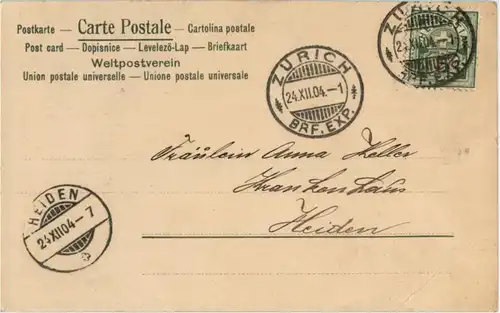 Postkarte — Carte Postale — Cartolina postale
Post card — Dopisnice — Levelező-Lap — Briefkaart
Weltpostverein
Union postale universelle — Unione postale universale
ZÜRICH
24.XII.04.–1
BRF. EXP.
ZÜRICH
24.XII.04.–1
BRF. EXP.
Fräulein Anna Keller
Krankenhaus
Heiden
HEIDEN
24.XII.04–7